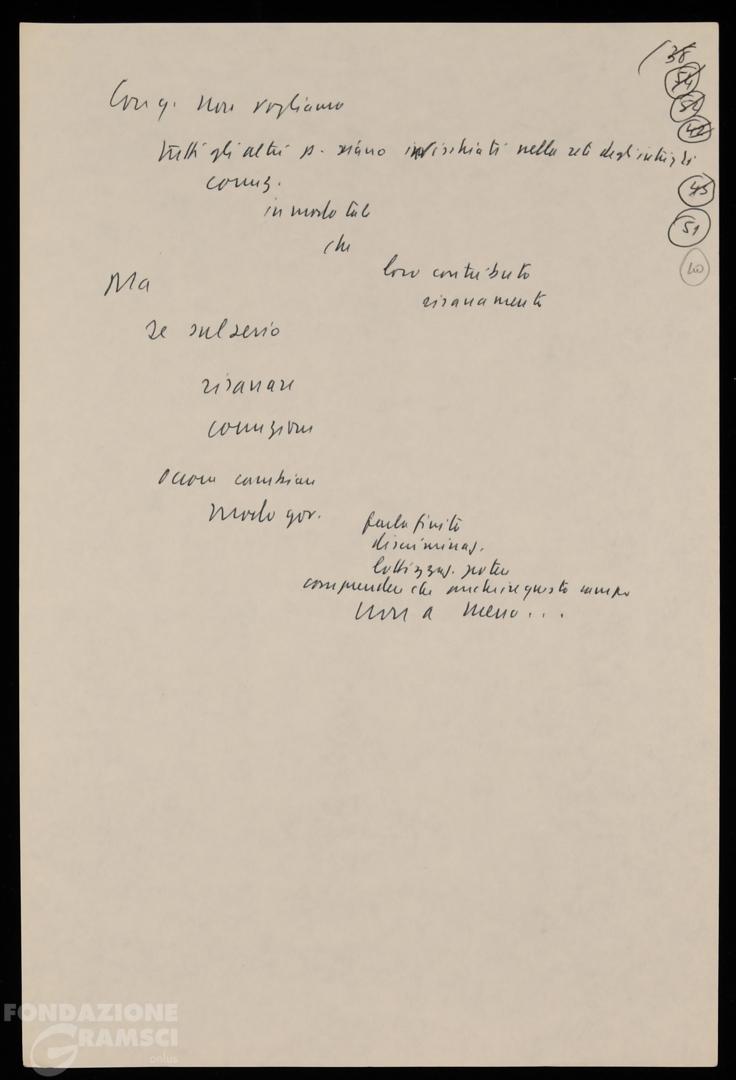 38
54
52
42
45
51
40
Con q. non vogliamo
tutti gli altri p. siano invischiati nella rete degli intrighi
corruz.
in modo tale
che
loro contributo
risanamento
Ma
se sul serio
risanare
corruzione
occorre cambiare
modo gov.
farla finita
discriminaz.
lottizzaz. potere
comprendere che anche in questo campo
non a meno...
FONDAZIONE
GRAMSCI
onlus